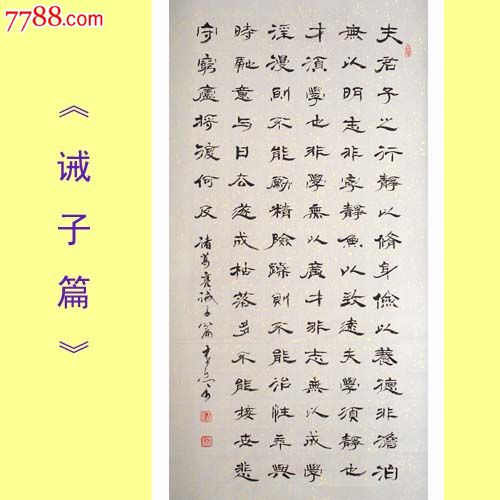 7788.com
《诫子篇》
夫君子之行靜以脩身儉以養德非澹泊
無以明志非寧靜無以致遠夫學須靜也
才須學也非學無以廣才非志無以成學
淫漫則不能勵精險躁則不能治性年與
時馳意與日去遂成枯落多不能接世悲
守窮廬將復何及 諸葛亮誡子篇